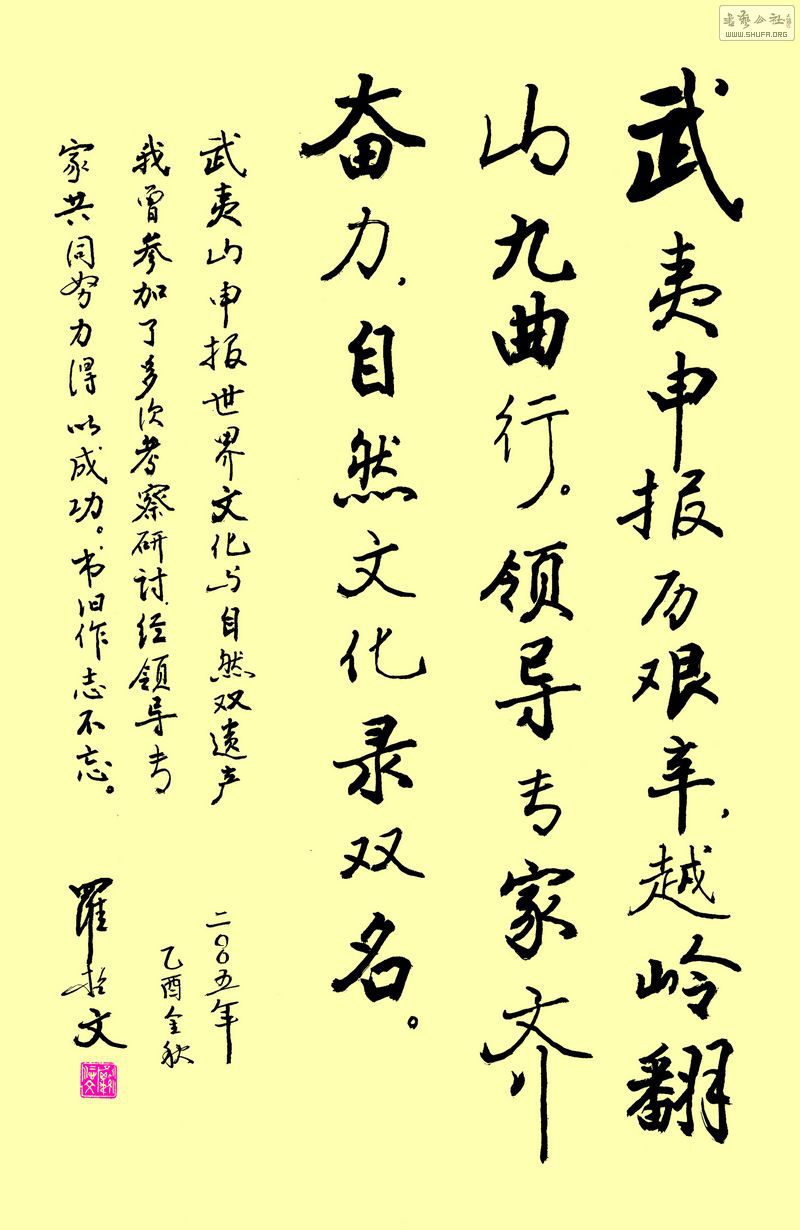 武夷申报历艰辛，越岭翻
山九曲行。领导专家齐
奋力，自然文化录双名。
武夷山申报世界文化与自然双遗产
我曾参加了多次考察研讨，经领导专
家共同努力得以成功。书旧作志不忘。
二〇〇五年
乙酉金秋
罗哲文
书艺公社
WWW.SHUFA.ORG